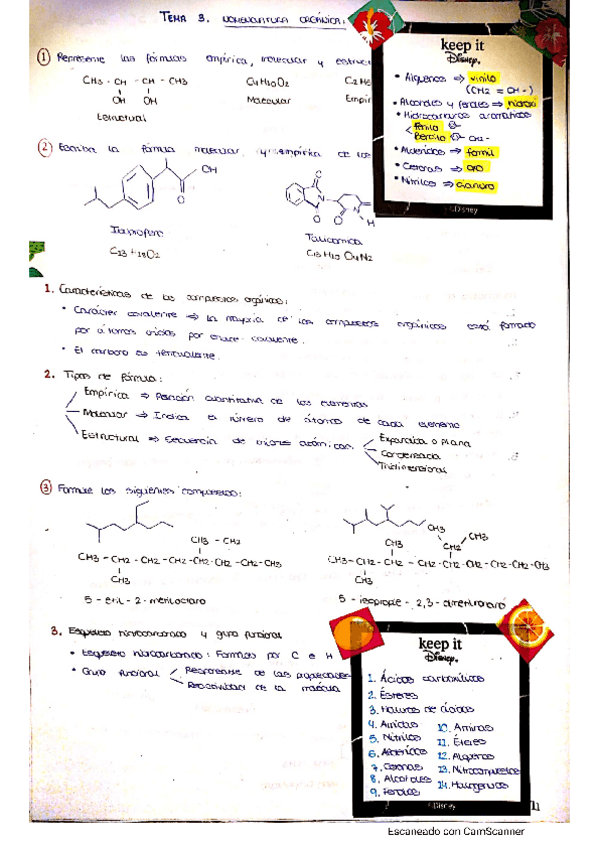 TEMA 3. NOMENCLATURA ORGÁNICA:
① Represente las fórmulas empírica, molecular y estruc
CH3 - CH - CH - CH3
OH OH
Estructural
C4H10O2
Molecular
C2H5
Empír
keep it
Disney.
• Alquenos ⇒ vinilo
(CH2 = CH -)
• Alcoholes y fenoles ⇒ hidroxi
• Hidrocarburos aromáticos
Fenilo
Bencilo CH2-
• Aldehídos ⇒ formil
• Cetonas ⇒ oxo
• Nitrilos ⇒ cianuro
©Disney
② Escriba la fórmula molecular y empírica de los
OH
O
Ibuprofeno
C13H18O2
O
N
O
O
N
H
Talidomida
C13H10O4N2
1. Características de los compuestos orgánicos:
• Carácter covalente ⇒ la mayoría de los compuestos orgánicos está formado
por átomos unidos por enlace covalente.
• El carbono es tetravalente.
2. Tipos de fórmula:
Empírica ⇒ Relación cuantitativa de los elementos
Molecular ⇒ Indica el número de átomos de cada elemento
Estructural ⇒ Secuencia de uniones atómicas
Expandida o plana
Condensada
Tridimensional
③ Formule los siguientes compuestos:
CH3 - CH2
CH3 - CH2 - CH2 - CH2 - CH2 - CH2 - CH2 - CH3
CH3
5 - etil - 2 - metiloctano
CH3
CH3
CH3
CH2
CH3 - CH2 - CH2 - CH2 - CH2 - CH2 - CH2 - CH2 - CH3
CH3
5 - isopropil - 2,3 - dimetilnonano
3. Esqueleto hidrocarbonado y grupo funcional
• Esqueleto hidrocarbonado: Formados por C e H
• Grupo funcional
Responsable de las propiedades
Reactividad de la molécula
keep it
Disney.
1. Ácidos carboxílicos
2. Ésteres
3. Haluros de ácidos
4. Amidas
5. Nitrilos
6. Aldehídos
7. Cetonas
8. Alcoholes
9. Fenoles
10. Aminas
11. Éteres
12. Alquenos
13. Nitrocompuestos
14. Halogenuros
©Disney
Escaneado con CamScanner